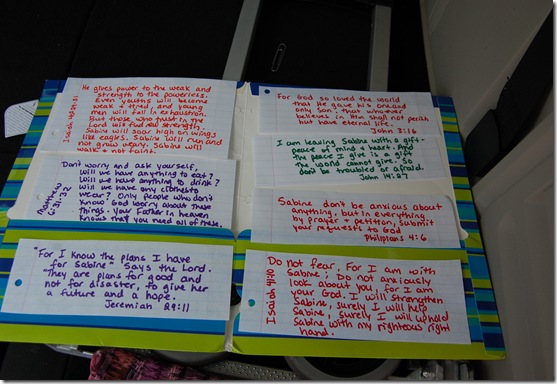 Isaiah 40:29-31
He gives power to the weak and
strength to the powerless.
Even youths will become
weak + tired, and young
men will fall in exhaustion.
But those who trust in the
Lord will find new strength.
Sabine will soar high on wings
like eagles. Sabine will run and
not grow weary. Sabine will
walk + not faint.
Matthew
6:31-32
Don't worry and ask yourself,
Will we have anything to eat?
Will we have anything to drink?
Will we have any clothes to
wear? Only people who don't
know God worry about these
things. Your Father in heaven
knows that you need all of these.
"For I know the plans I have
for Sabine" Says the Lord.
"They are plans for good and
not for disaster, to give her
a future and a hope.
Jeremiah 29:11
For God so loved the world
that He gave his one and
only Son, that whoever
believes in Him shall not perish
but have eternal life.
John 3:16
I am leaving Sabine with a gift-
peace of mind + heart. And
the peace I give is a gift
the world cannot give. So
don't be troubled or afraid.
John 14:27
Sabine don't be anxious about
anything, but in everything
by prayer + petition, submit
your requests to God
Philipians 4:6
Isaiah 41:10
Do not fear, For I am with
Sabine; Do not anxiously
look about you, for I am
your God. I will strengthen
Sabine, surely I will help
Sabine, Surely I will uphold
Sabine with my righteous right
hand.